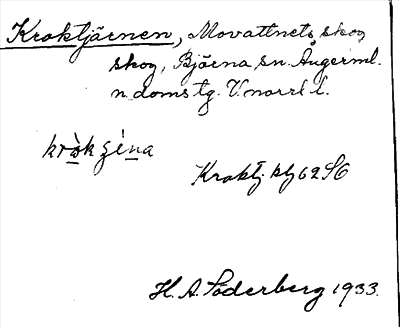 Kroktjärnen, Movattnets skog
skog, Bjärna sn. Ångerml.
n. doms tg. V.norrl l.
kròk ɟé·na
Kroktj. ktj 62 S6
H. A. Söderberg 1933.